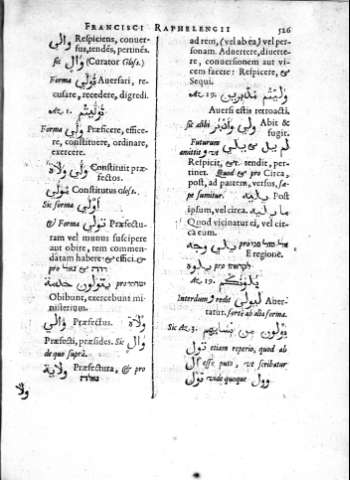 FRANCISCI RAPHELENGII 526
والي Respiciens, conuer-
sus, tendés, pertinés.
Sic وال (Curator Gloss.)
Forma تولى Auersari, re-
cusare, recedere, digredi.
Az. 1. توليتم
Forma ولى Præficere, efficere,
constituere, ordinare,
exercere.
ولى ولاة Constituit præ-
fectos.
مولى Constitutus Gloss.
Sic forma أولى
& Forma تولى Præfectu-
ram vel munus suscipere
aut obire, tem commen-
datam habere & effici. &
يتولون خدمة pro
Obibunt, exercebunt mi-
nisterium.
ولاة Præfectus. والي
Præfecti, præsides. Sic وال
de quo suprà.
ولاية Præfectura, & pro
ولا
ad rem, (vel ab ea) vel per-
sonam. Aduertere, diuerte-
re, conuersionem aut vi-
cem facere: Respicere, &
Sequi.
Az 19. وليتم مدبرين
Auersi estis retroacti.
sic alibi ولى وادبر Abit &
fugit.
Futurum لم يل يلي
amittit و vt
Respicit, &c. tendit, per-
tinet. Quod & pro Circa,
post, ad partem, versus, sæ-
pe sumitur. يليه Post
ipsum, vel circa. ما يليه
Quod vicinatur ei, vel cir-
ca eum.
يلي وجه pro
E regione.
يلوه pro
Az 19. يلونكم
Interdum و redit ليولي Auer-
tatur. fortè ab alia forma.
Sic Az. 3. يولون من نسايهم
تول etiam reperio, quod ab
ال esse puto, vt scribatur
تول vide quoque وول